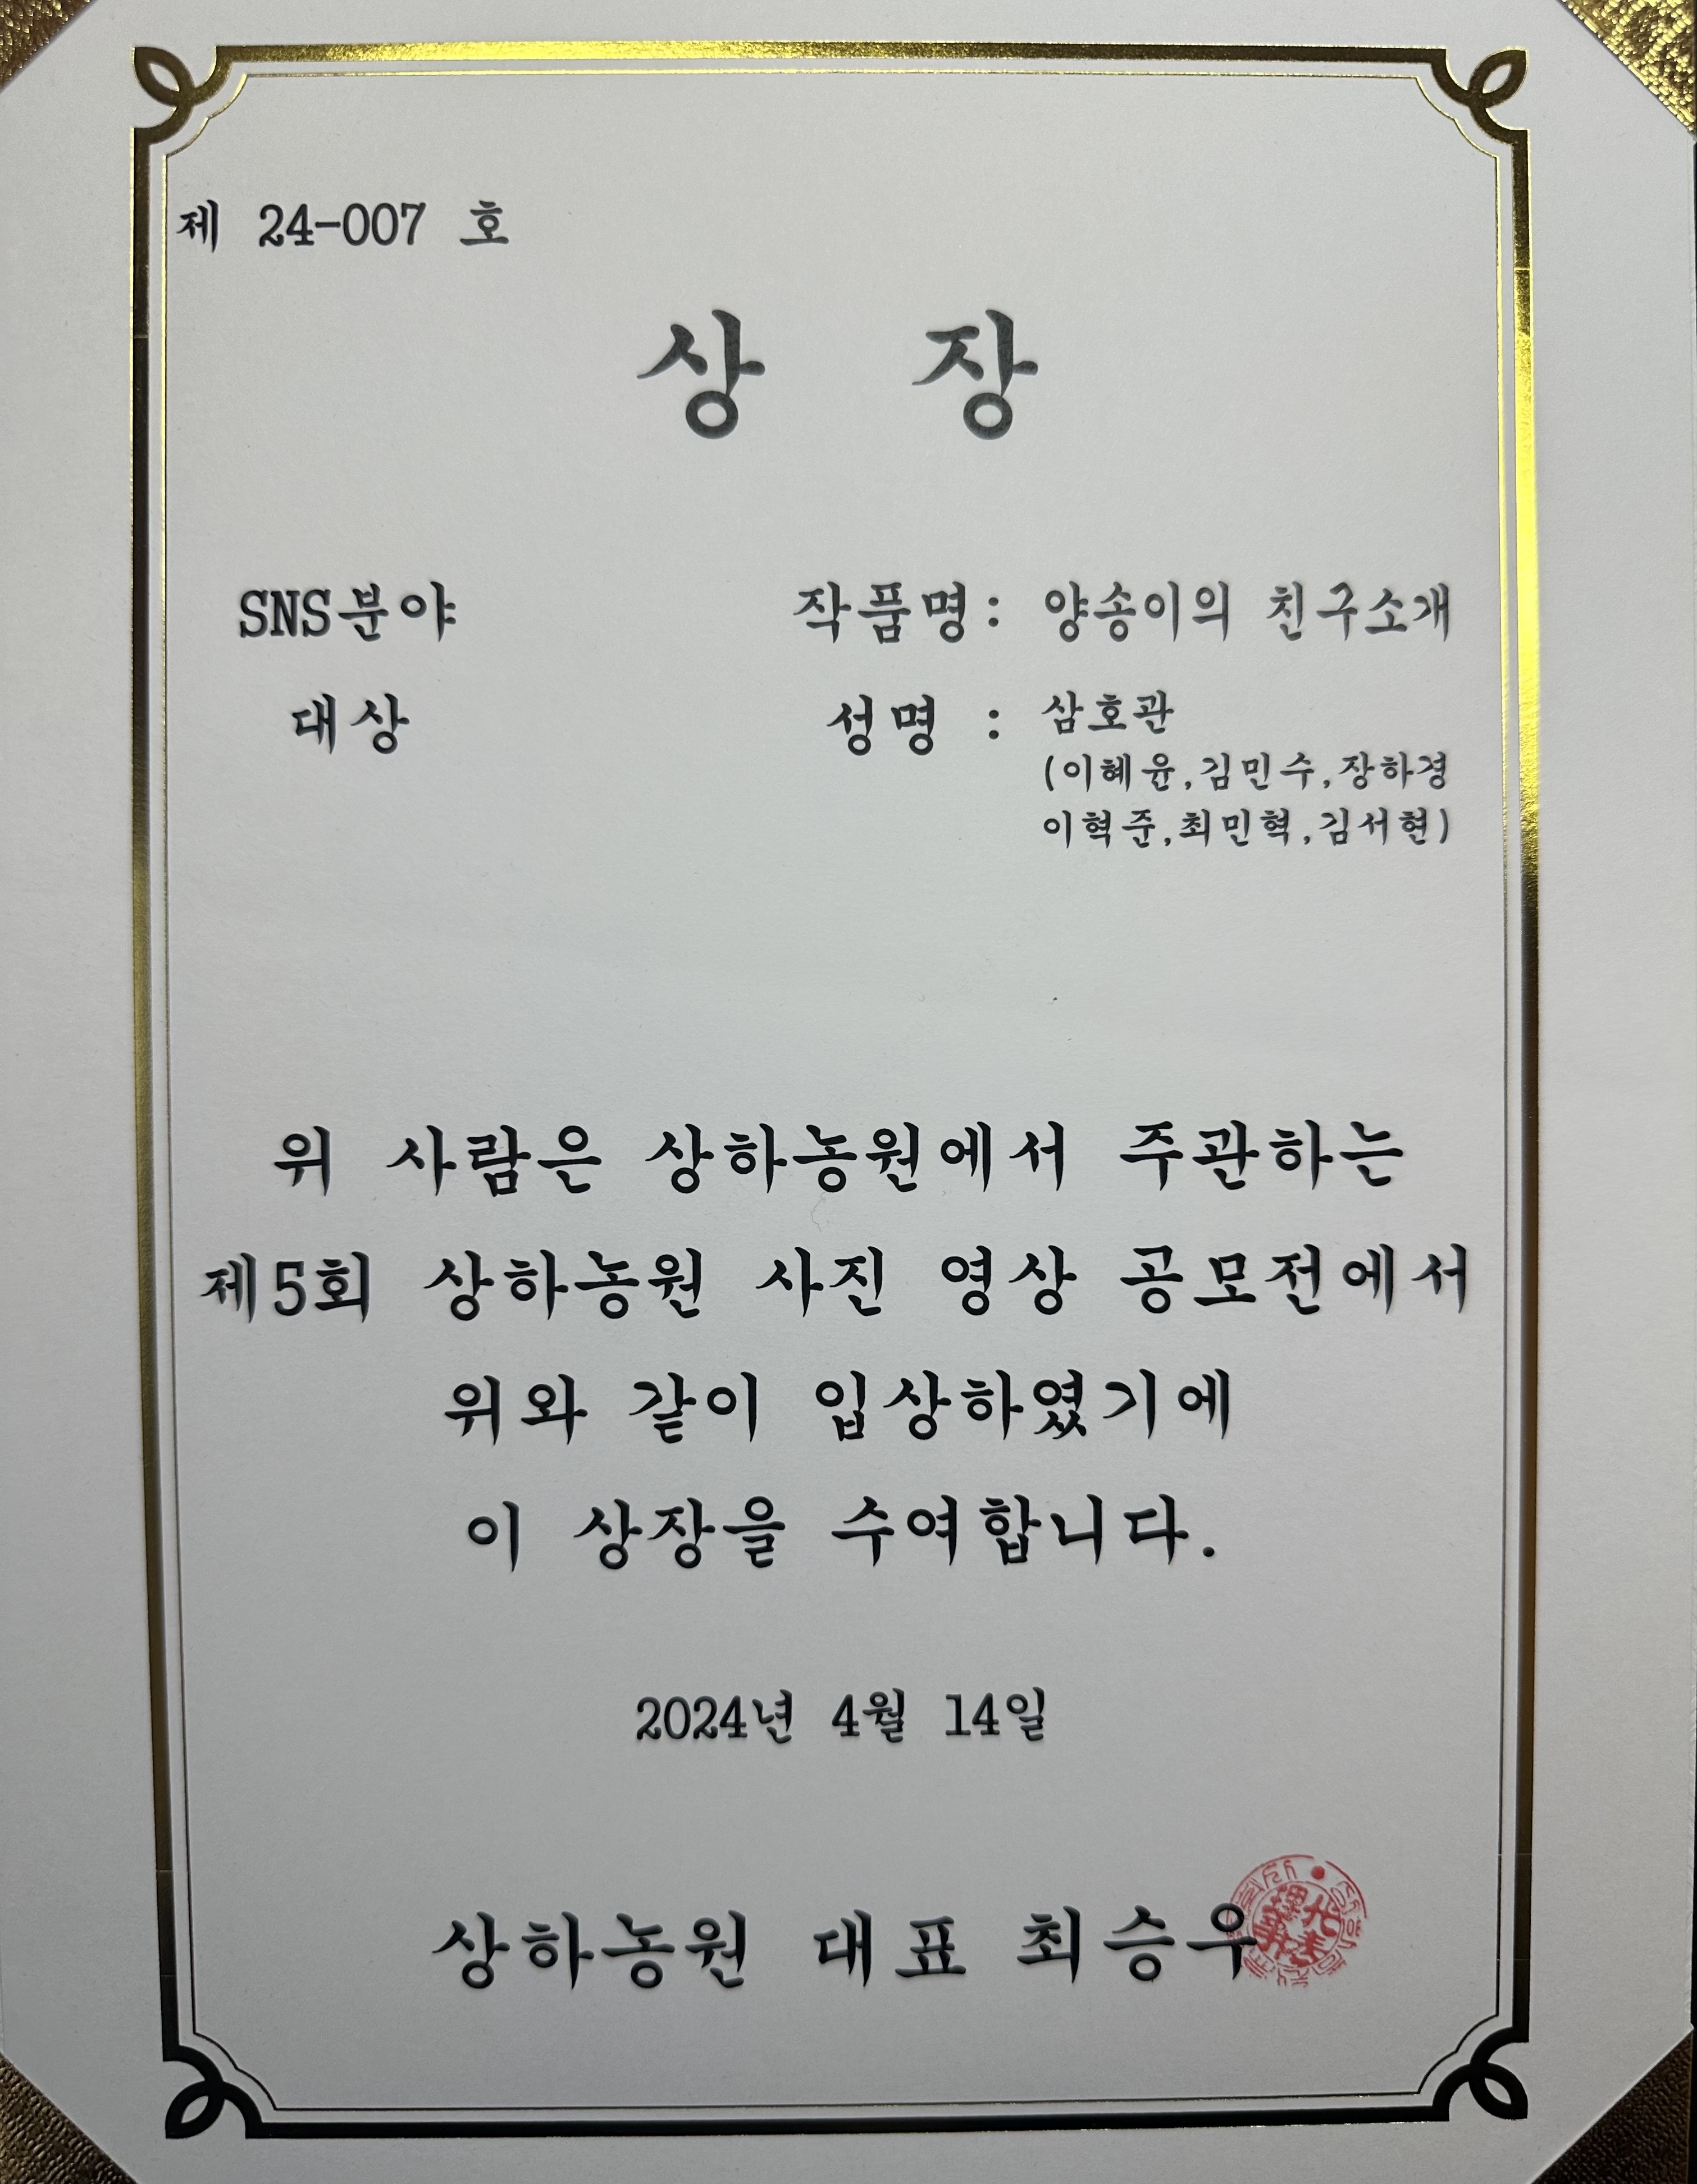 제 24-007 호
상 장
SNS분야 작품명: 양송이의 친구소개
대상 성명 : 삼호관
(이혜윤,김민수,장하경
이혁준,최민혁,김서현)
위 사람은 상하농원에서 주관하는
제5회 상하농원 사진 영상 공모전에서
위와 같이 입상하였기에
이 상장을 수여합니다.
2024년 4월 14일
상하농원 대표 최승우